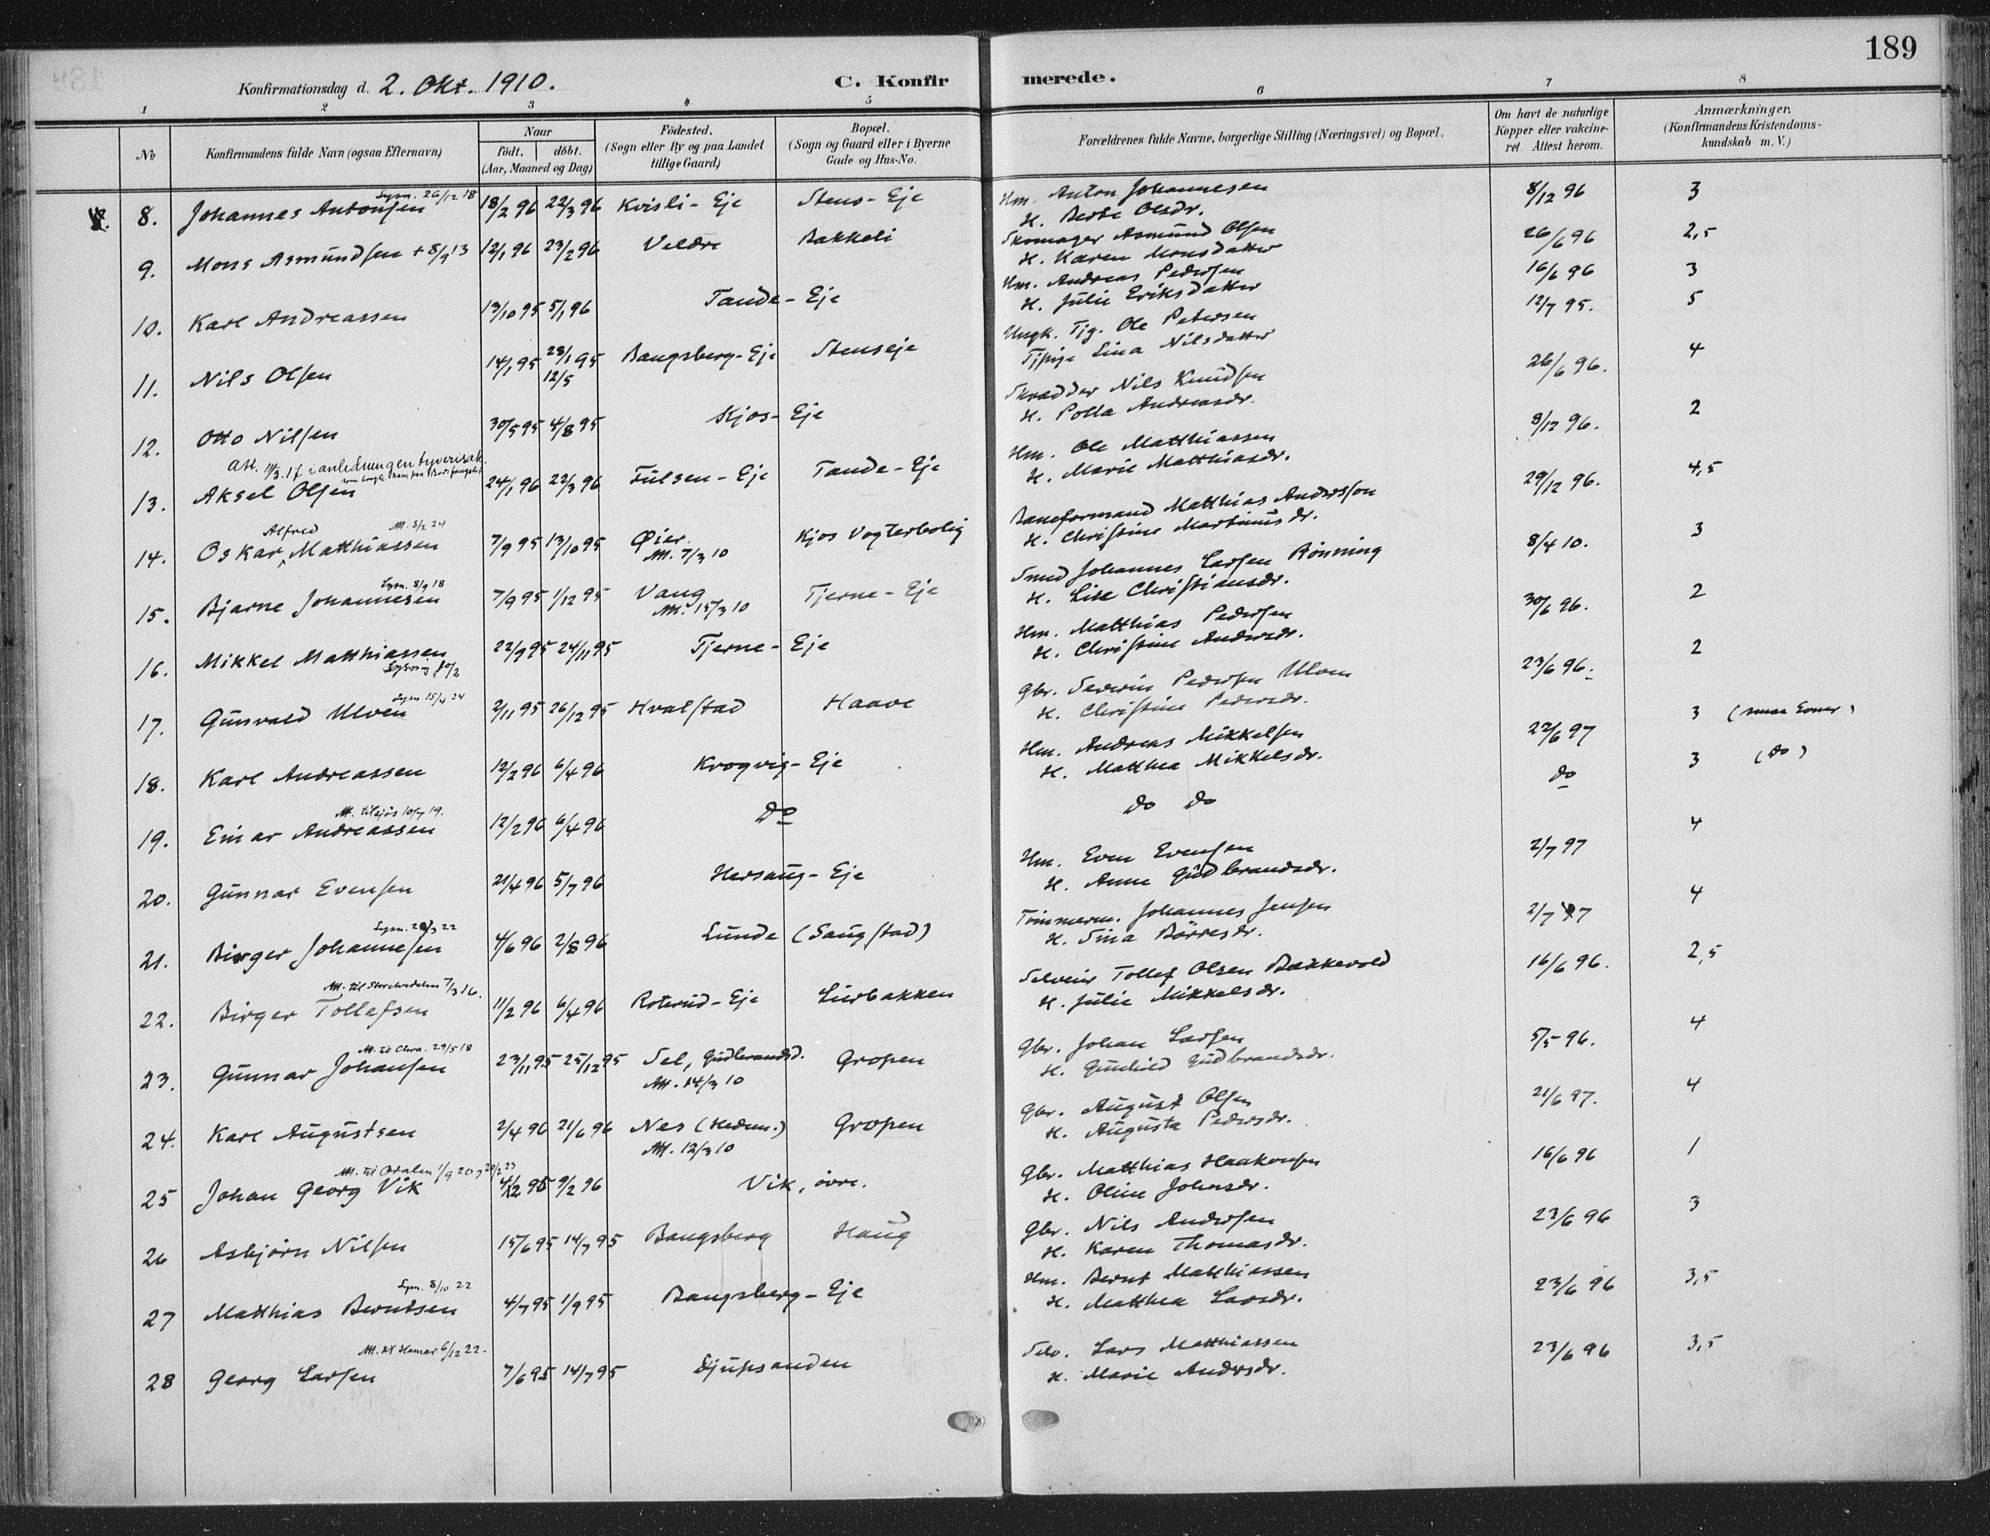 189
Konfirmationsdag d. 2. Okt. 1910. C. Konfirmerede.
1 2 3 4 5 6 7 8
No
Konfirmandens fulde Navn (ogsaa Efternavn)
Naar
födt. döbt.
(Aar, Maaned og Dag)
Födested.
(Sogn eller By og paa Landet
tillige Gaard)
Bopæl.
(Sogn og Gaard eller i Byerne
Gade og Hus-No.
Forældrenes fulde Navne, borgerlige Stilling (Næringsvei) og Bopæl.
Om havt de naturlige
Kopper eller vakcine-
ret. Attest herom.
Anmærkninger.
(Konfirmandens Kristendoms-
kundskab m. V.)
Lysn. 26/12 18
8. Johannes Antonsen 18/2 96 22/3 96 Kvisli - Eje Stens - Eje Hm. Anton Johannesen 8/12 96 3
H. Berte Olsdr.
9. Mons Asmundsen + 8/9 13 12/1 96 23/2 96 Veldre Bakkeli Skomager Asmund Olsen 26/6 96 2,5
H. Karen Monsdatter
10. Karl Andreassen 13/10 95 5/1 96 Tande - Eje Hm. Andreas Pedersen 16/6 96 3
H. Julie Eriksdatter
11. Nils Olsen 14/1 95 23/1 95 12/5 Bangsberg - Eje Stenseje Ungk. Tjg. Ole Petersen 12/7 95. 5
Tjpige Lina Nilsdatter
12. Otto Nilsen 30/5 95 4/8 95 Kjos - Eje Skrædder Nils Knudsen 26/6 96. 4
H. Polla Andreasdr.
Att. 11/3 17 i anledningen tyverisak
13. Aksel Olsen 24/1 96 22/3 96 Fulsen - Eje Tande - Eje Hm. Ole Matthiassen 8/12 96. 2
H. Marie Matthiasdr.
Alfred Att. 8/2 24
14. Oskar Matthiassen 7/9 95 13/10 95 Øier. Kjos Vogterbolig Baneformand Matthias Andersson 29/12 96. 4,5
Att. 7/3 10 H. Christine Martinusdr.
Lysn. 8/9 18
15. Bjarne Johannesen 7/9 95 1/12 95 Vang Tjerne - Eje Smed Johannes Larsen Rönning 8/4 10. 3
Att. 15/3 10 H. Lise Christiansdr.
16. Mikkel Matthiassen 22/9 95 24/11 95 Tjerne - Eje Hm. Matthias Pedersen 30/6 96. 2
H. Christine Andersdr.
Lysn 15/4 24
17. Gunvald Ulven 2/11 95 26/12 95 Hvalstad Haave Gbr. Severin Pedersen Ulven 23/6 96. 2
H. Christine Pedersdr.
18. Karl Andreassen 12/2 96 6/4 96 Krogvig - Eje Hm. Andreas Mikkelsen 22/6 97 3
H. Matthea Mikkelsdr.
19. Einar Andreassen 12/2 96 6/4 96 Do do do do 3 (do)
20. Gunnar Evensen 21/4 96 5/7 96 Hersaug - Eje Hm. Even Evensen 2/7 97 4
H. Anne Gudbrandsdr.
21. Birger Johannesen 4/6 96 2/8 96 Lunde (Saugstad) Tömmerm. Johannes Jensen 2/7 97 4
H. Sina Börresdr.
22. Birger Tollefsen 11/2 96 6/4 96 Roterud - Eje Lierbakken Selveier Tollef Olsen Bakkevold 16/6 96. 2,5
H. Julie Mikkelsdr.
Att. til Chra. 29/5 18
23. Gunnar Johansen 23/11 95 25/12 95 Sel, Gudbrandsd. Gropen Gbr. Johan Larsen 5/5 96. 4
Att. 14/3 10 H. Gunhild Gudbrandsdr.
24. Karl Augustsen 2/4 96 21/6 96 Nes (Hedem.) Gropen Gbr. August Olsen 21/6 97. 4
Att. 12/3 10 H. Augusta Pedersdr.
Att. til Odalen 1/9 20
25 Johan Georg Vik 4/12 95 9/2 96 Vik, övre. Gbr. Matthias Haakonsen 16/6 96 1
H. Oline Johnsdr.
26 Asbjörn Nilsen 15/6 95 14/7 95 Bangsberg Haug Gbr. Nils Andersen 23/6 96 3
H. Karen Thomasdr.
Lysn. 8/10 22
27 Matthias Berntsen 4/7 95 1/9 95 Bangsberg - Eje Hm. Bernt Matthiassen 23/6 96 3,5
H. Matthea Larsdr.
Att. til Hamar 6/12 22.
28 Georg Larsen 7/6 95 14/7 95 Djupsanden Selv. Lars Matthiassen 23/6 96 3,5
H. Marie Andersdr.